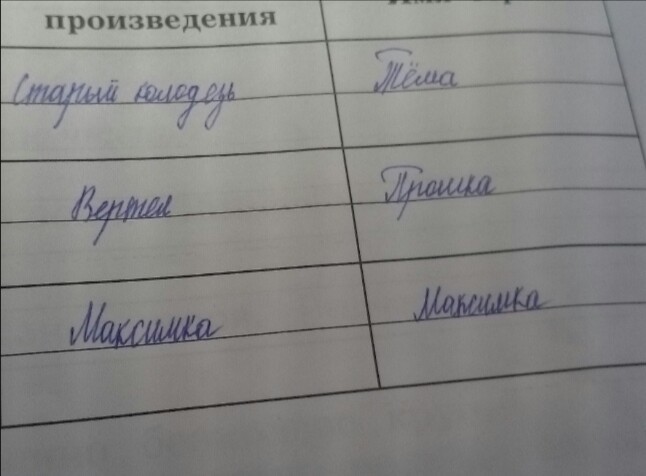 произведения
Старый колодезь Тёма
Вертел Прошка
Максимка Максимка